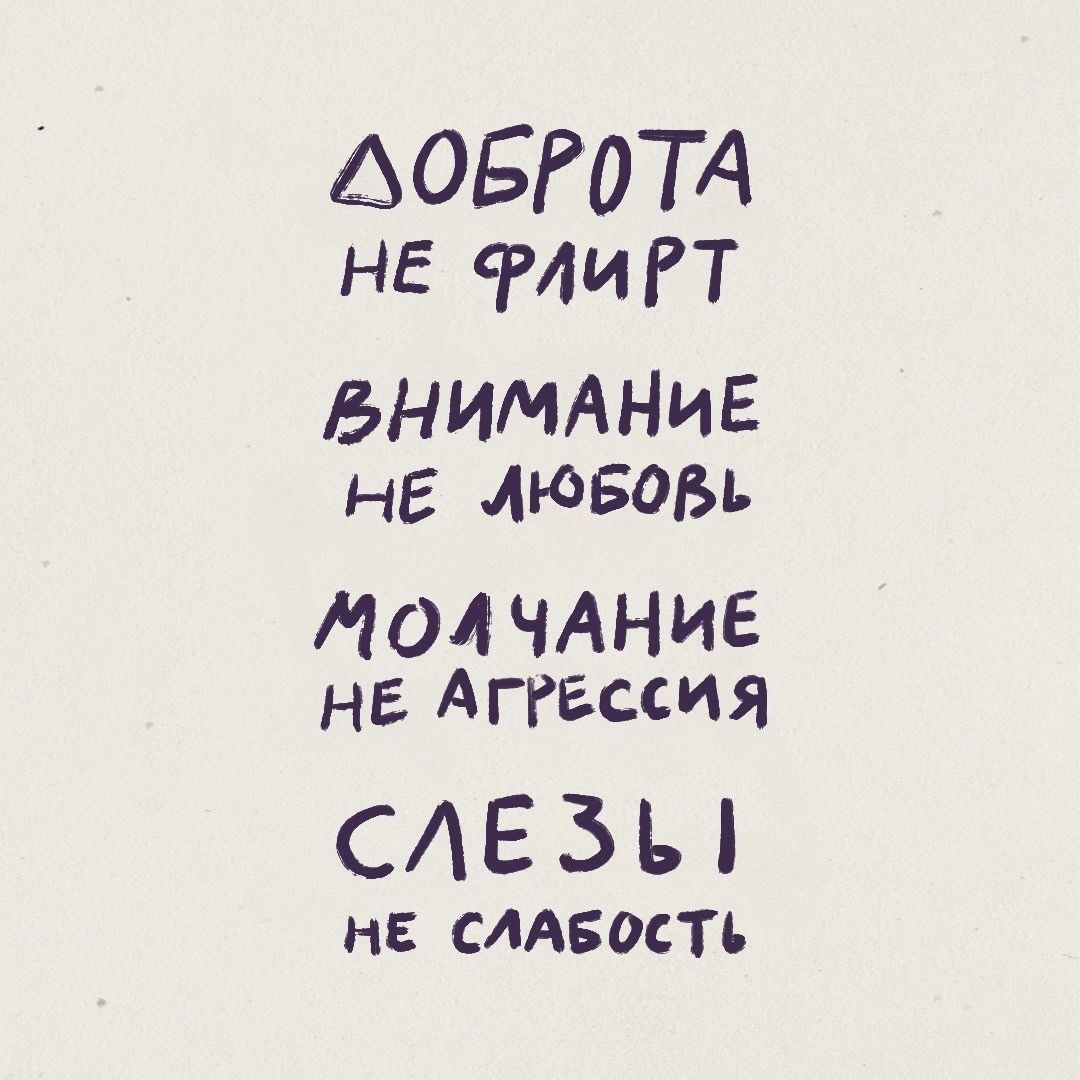 ДОБРОТА
НЕ ФЛИРТ
ВНИМАНИЕ
НЕ ЛЮБОВЬ
МОЛЧАНИЕ
НЕ АГРЕССИЯ
СЛЕЗЫ
НЕ СЛАБОСТЬ